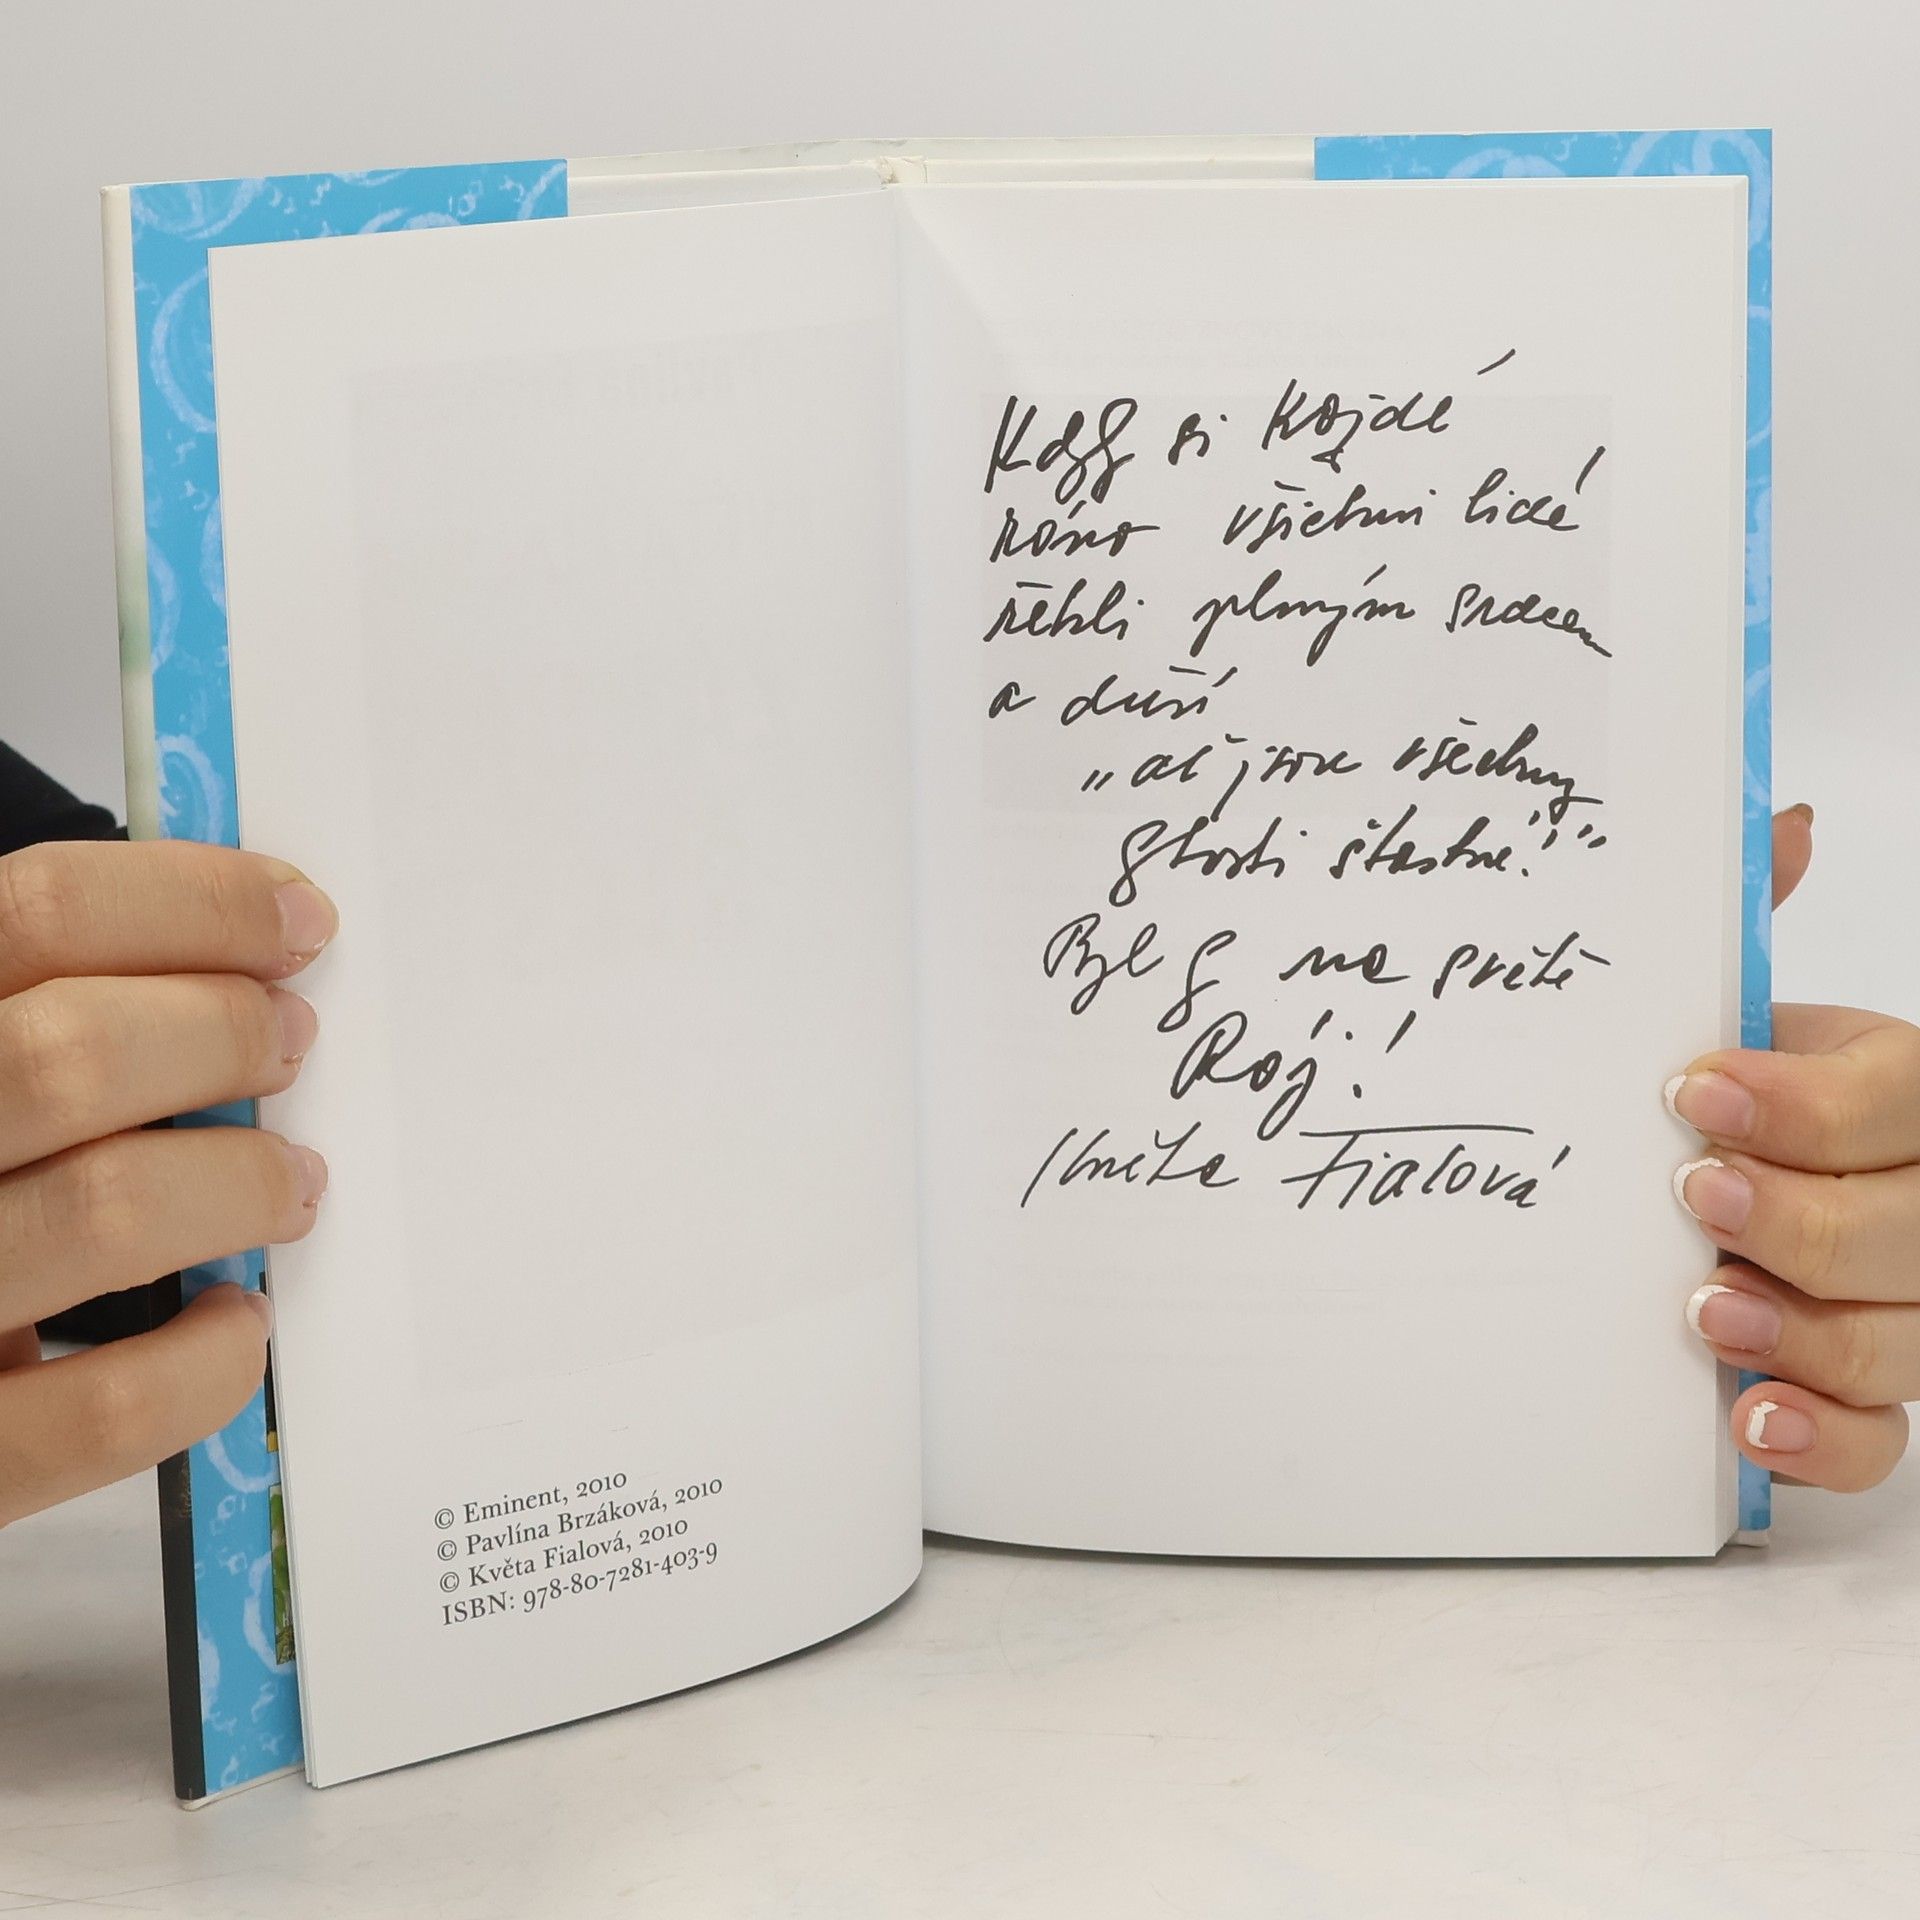 © Eminent, 2010
© Pavlína Brzáková, 2010
© Květa Fialová, 2010
ISBN: 978-80-7281-403-9
Kdyby si každé
ráno všichni lidé
řekli plným srdcem
a duší
„ať jsou všechny
bytosti šťastné!“
Byl by na světě
Ráj!
Květa Fialová